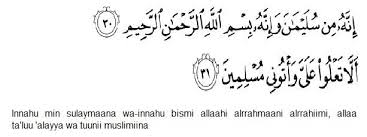 إِنَّهُ مِن سُلَيْمَانَ وَإِنَّهُ بِسْمِ اللَّهِ الرَّحْمَانِ الرَّحِيمِ ٣٠
أَلَّا تَعْلُوا عَلَيَّ وَأْتُونِي مُسْلِمِينَ ٣١
Innahu min sulaymaana wa-innahu bismi allaahi alrrahmaani alrrahiimi, allaa
ta'luu 'alayya wa tuunii muslimiina